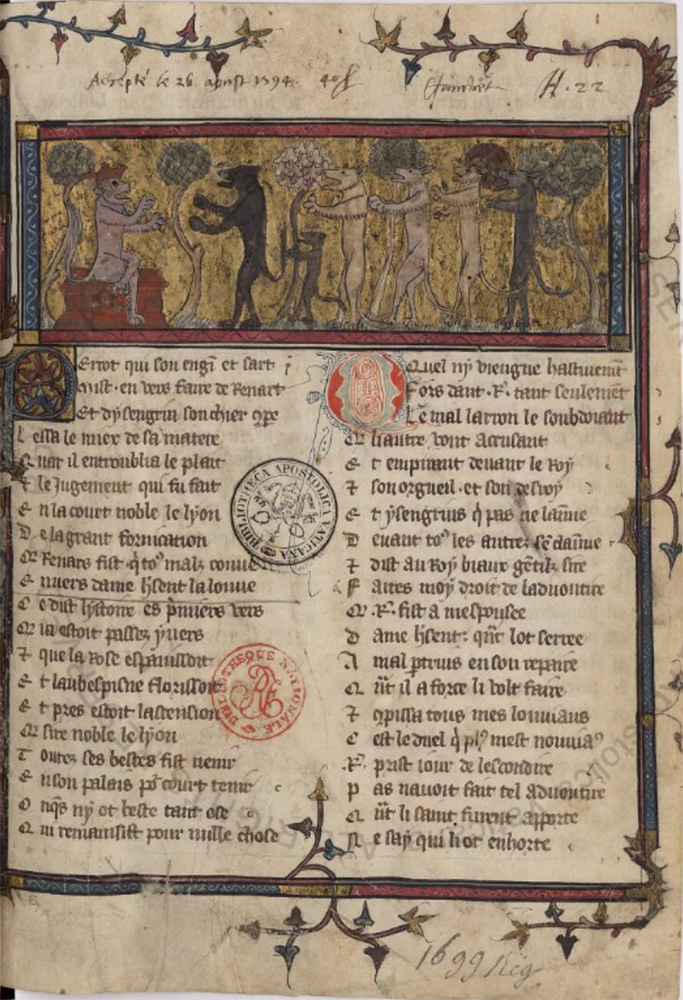 Achepté le 26 aoust 1594. 40 ſ
H. 22
Errot qui son engĩ et sart
mist en vers faire de Renart
Et dysengrin son chier cp̃e
L essa le miex de sa matere
Q uar il entroublia le plait
⁊ le Jugement qui fu fait
E n la court noble le lyon
D e la grant fornication
Q̃ Renars fist q̃ toˀ malz couue
E nuers dame hersent la louue
C e dist lystoire es p̃miers vers
Q̃ ia estoit passez yuers
⁊ que la Rose espanissoit
E t laubespine florissoit
E t pres estoit lascension
Q̃ sire noble le lyon
T outez ses bestes fist uenir
E n son palais po² court tenir
O nq̃s ny ot beste tant ose
Q ui remansist pour nulle chose
Quel ny viengne hastiuemt̃
Fors dant .R. tant seulemẽt
Le mal larron le soubdoiant
Q̃ li autre vont acusant
E t empirant deuant le Roy
⁊ son orgueil et son desroy
E t ysengrins q̃ pas ne laĩme
D euant toˀ les autrez se claĩme
⁊ dist au Roy biaux gẽtilz sire
F aites moy droit de lauoutire
Q̃ .R. fist a mespousee
D ame hersent q̃nt lot serree
A mal pertruis en son repaire
Q ñt il a force li volt faire
⁊ cp̃issa tous mes louuiaus
C est le duel q̃ plˀ mest nouuiaˀ
.R. prist iour de lescondire
P as nauoit fait tel auoutire
Q ñt li saint furent aporte
N e say qui li ot enhorte
BIBLIOTHECA APOSTOLICA VATICANA
BIBLIOTHEQUE NATIONALE
1699 Reg